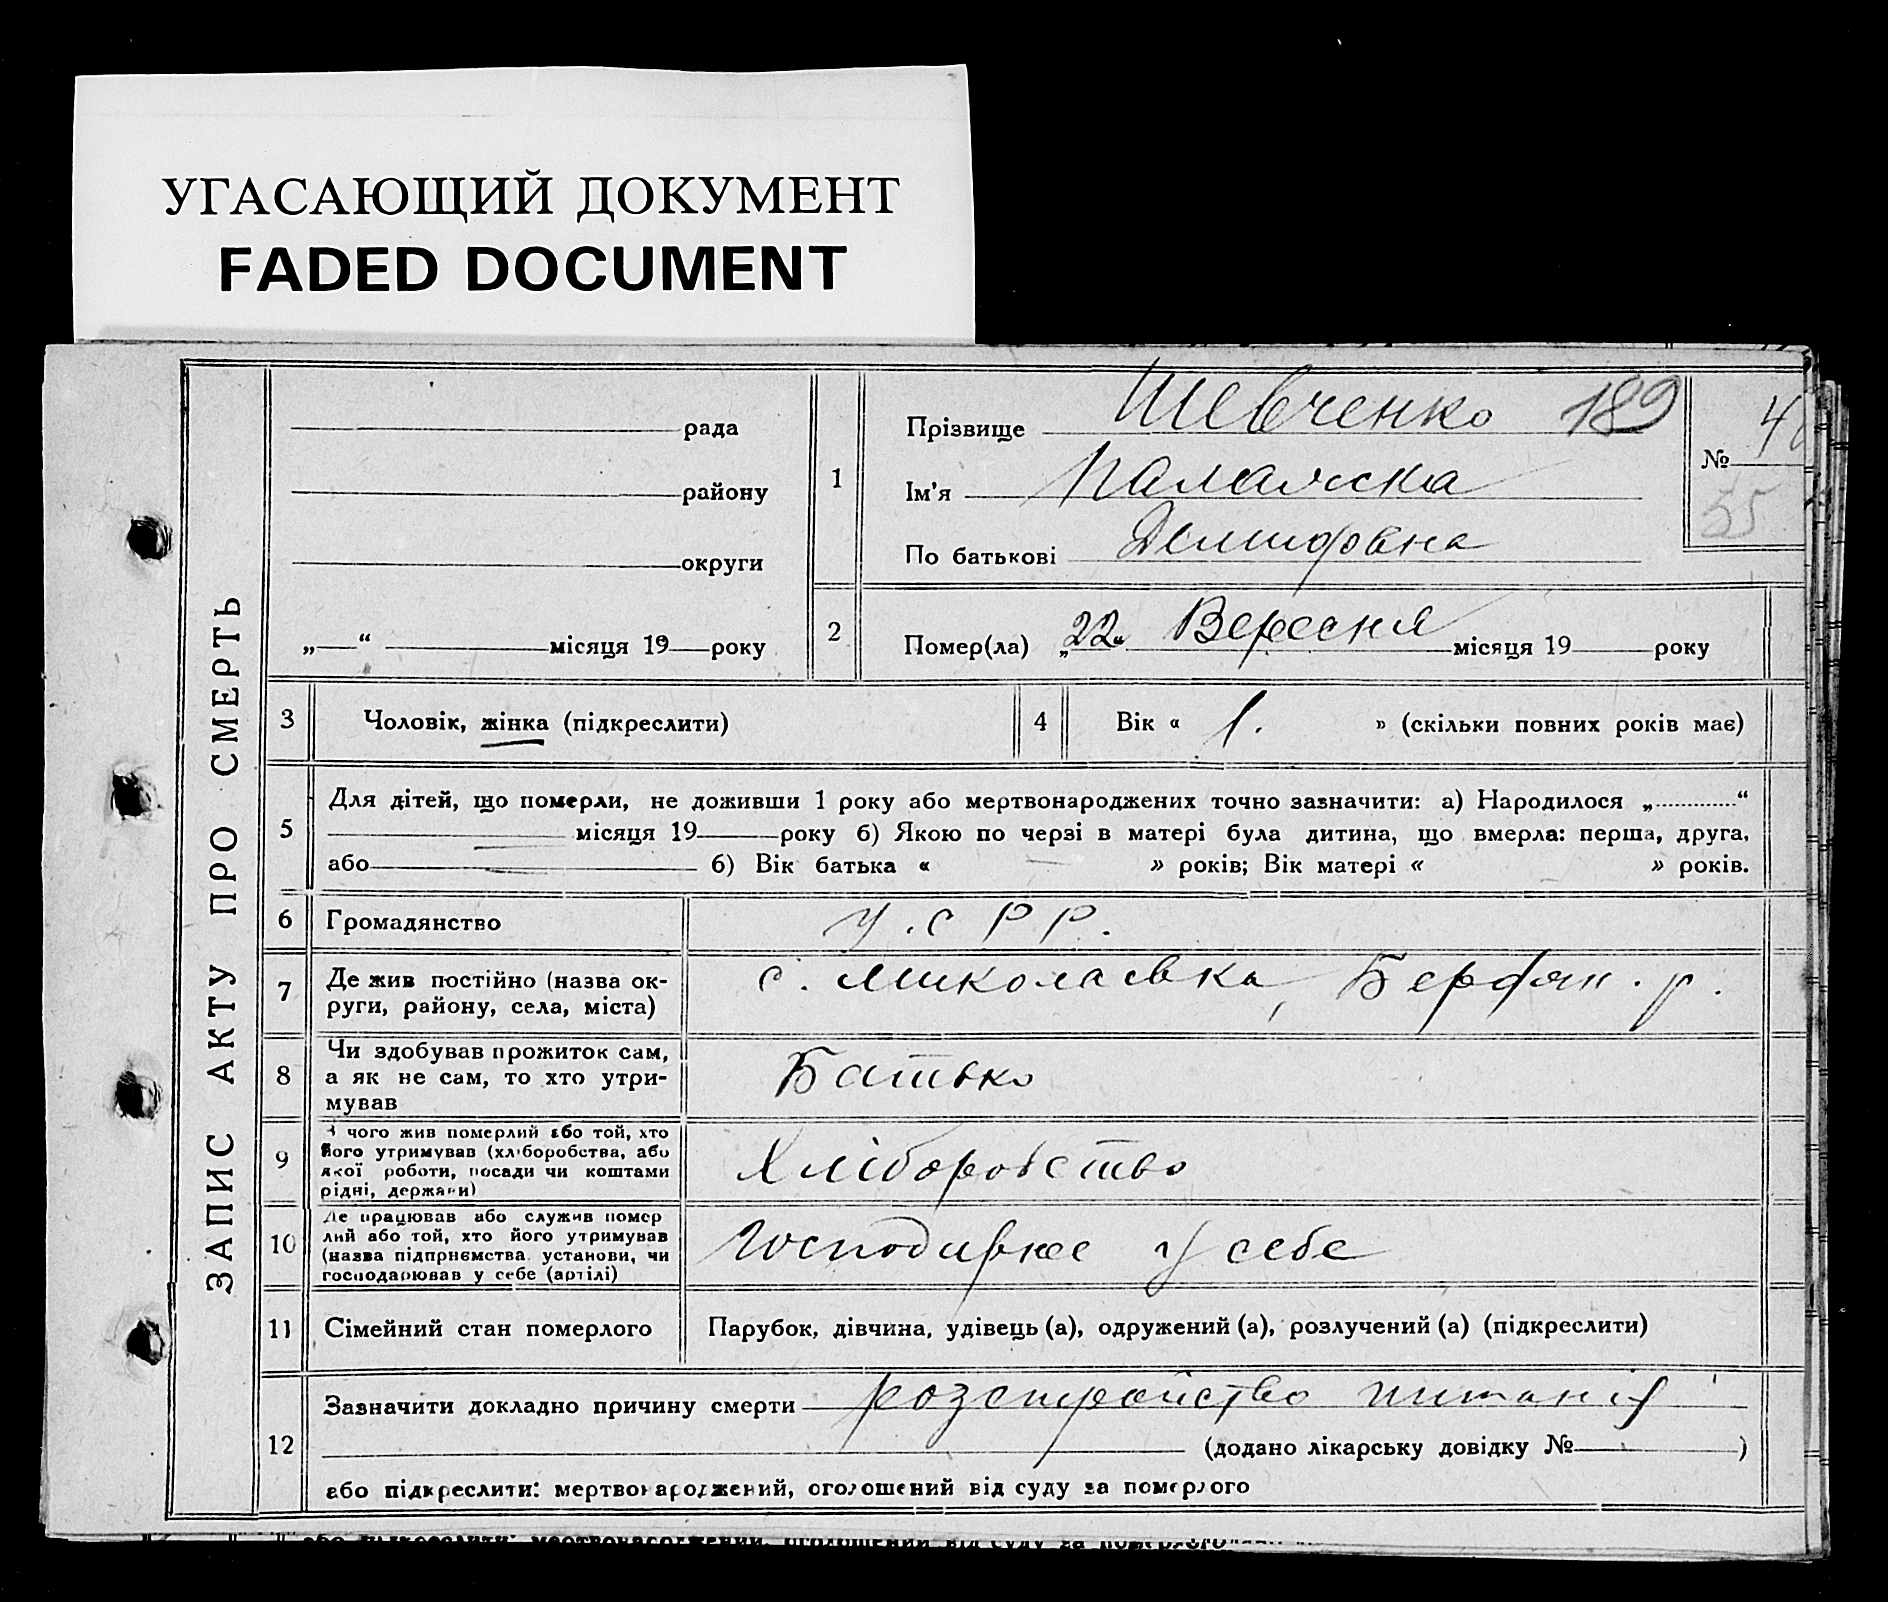 УГАСАЮЩИЙ ДОКУМЕНТ
FADED DOCUMENT
ЗАПИС АКТУ ПРО СМЕРТЬ
рада
району
округи
„—“ місяця 19 року
1
Прізвище Шевченко 189
Ім'я
По батькові
№ 4
55
2
Помер(ла) „22“ Вересня місяця 19 року
3 Чоловік, жінка (підкреслити)
4 Вік « 1. » (скільки повних років має)
5
Для дітей, що померли, не доживши 1 року або мертвонароджених точно зазначити: а) Народилося „............“
місяця 19 року б) Якою по черзі в матері була дитина, що вмерла: перша, друга,
або б) Вік батька « — » років; Вік матері « » років.
6 Громадянство У.С.Р.Р.
7
Де жив постійно (назва ок-
руги, району, села, міста)
с. Миколаевка, Бердян. р.
8
Чи здобував прожиток сам,
а як не сам, то хто утри-
мував
Батько
9
З чого жив померлий або той, хто
його утримував (хліборобства, або
якої роботи, посади чи коштами
рідні, держави)
Хліборобство
10
Де працював або служив помер
лий або той, хто його утримував
(назва підприємства, установи, чи
господарював у себе (артілі)
у себе
11 Сімейний стан померлого
Парубок, дівчина, удівець (а), одружений (а), розлучений (а) (підкреслити)
12
Зазначити докладно причину смерти розстройство питанія
(додано лікарську довідку № )
або підкреслити: мертвонароджений, оголошений від суду за померлого
або підкреслити: мертвонароджений, оголошений від суду за померлого